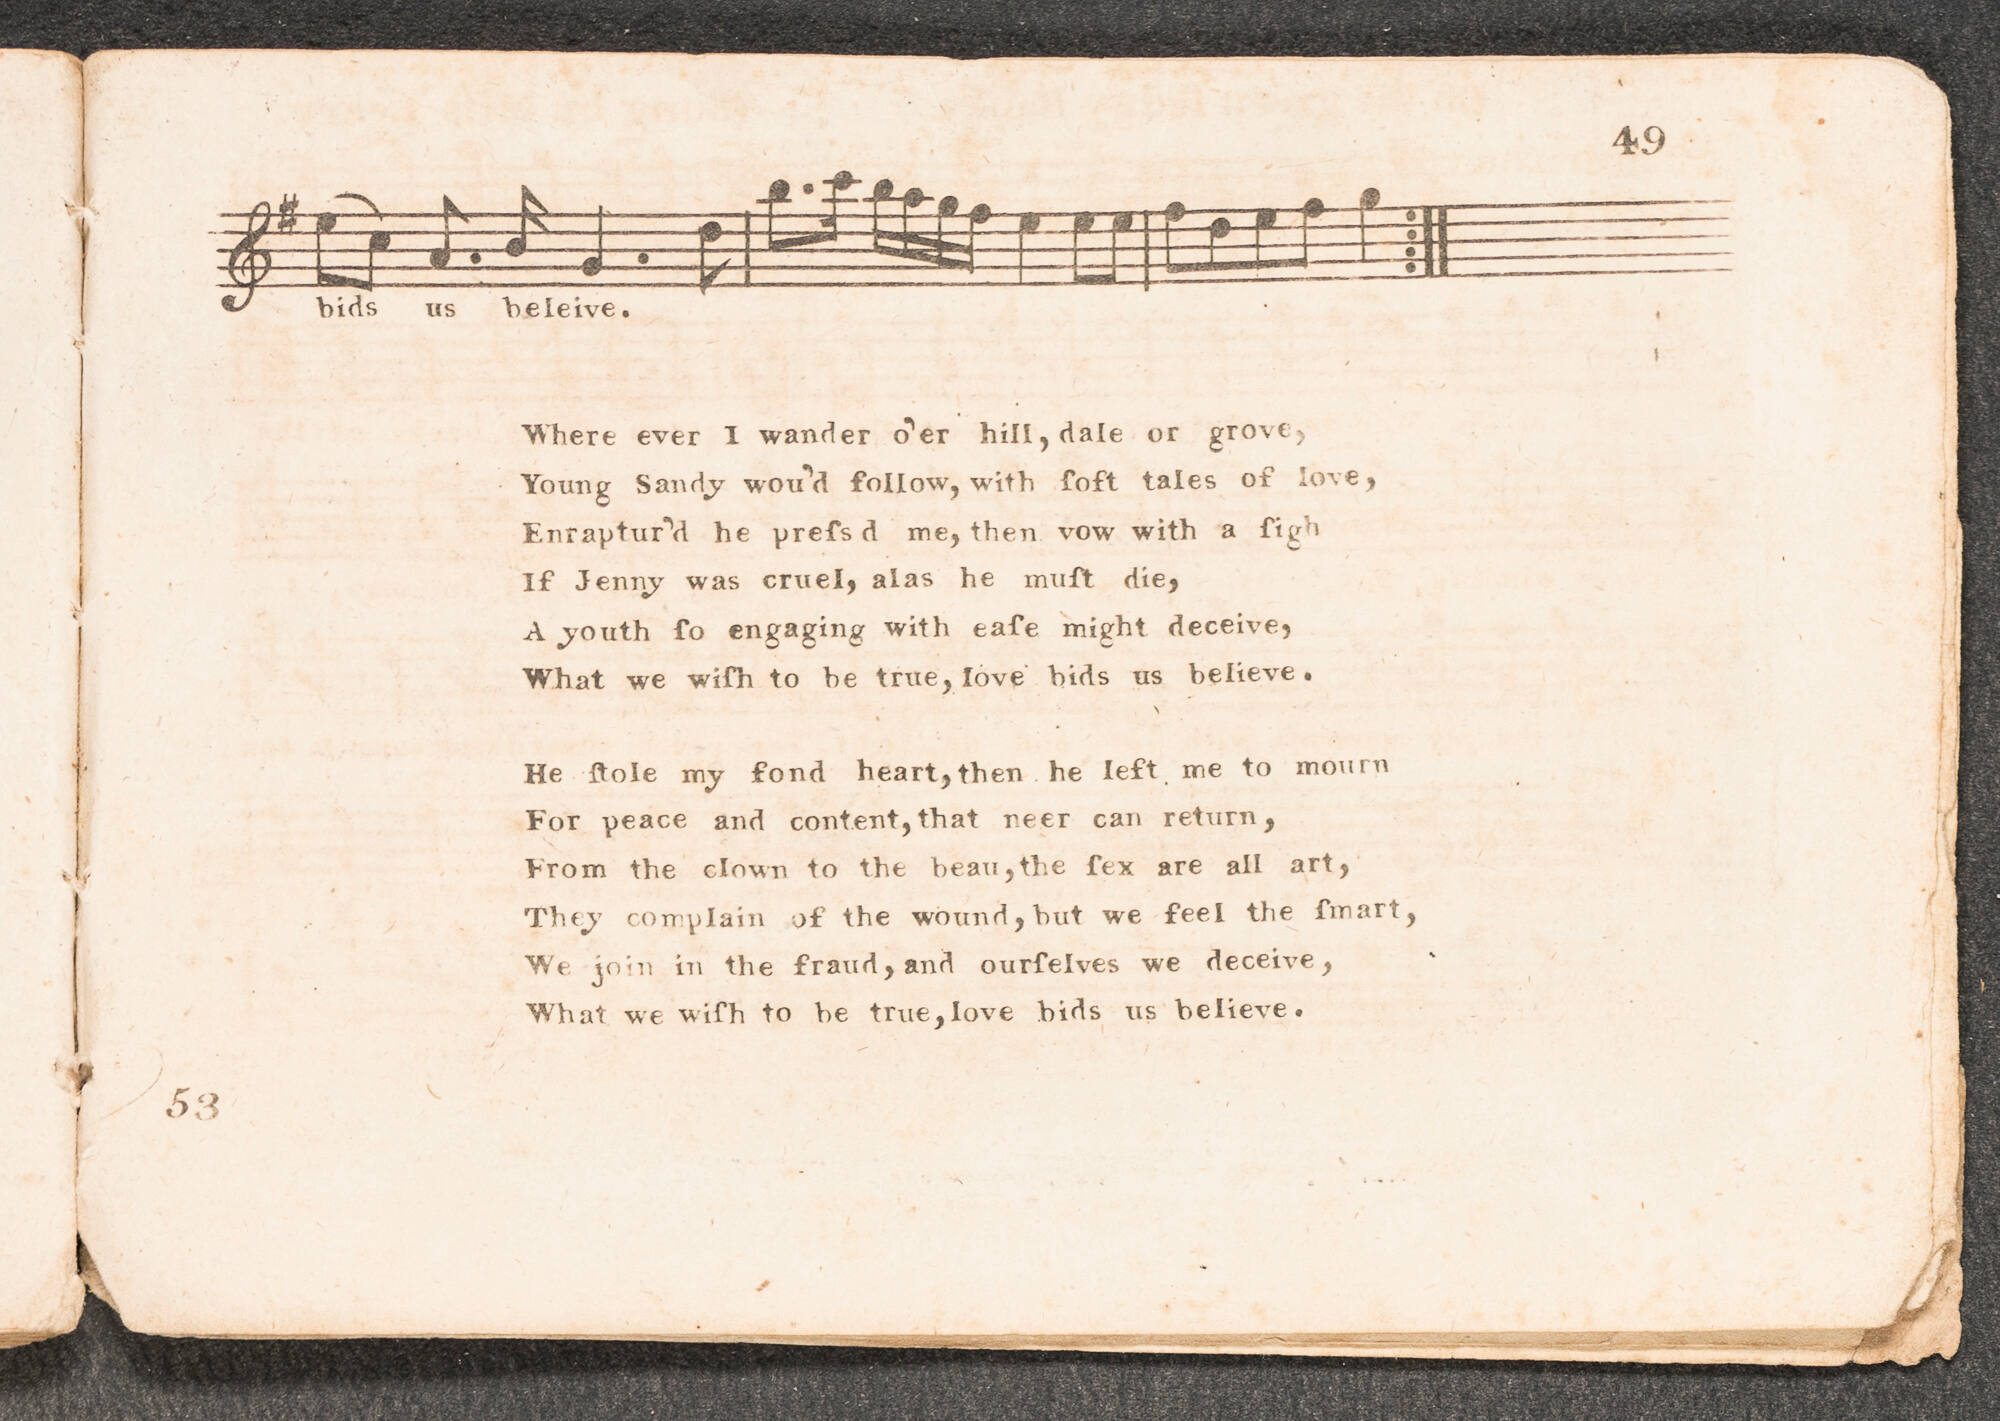 49
bids us beleive.
Where ever I wander o'er hill, dale or grove,
Young Sandy wou'd follow, with ſoft tales of love,
Enraptur'd he preſs d me, then vow with a ſigh
If Jenny was cruel, alas he muſt die,
A youth ſo engaging with eaſe might deceive,
What we wiſh to be true, love bids us believe.
He ſtole my fond heart, then he left me to mourn
For peace and content, that neer can return,
From the clown to the beau, the ſex are all art,
They complain of the wound, but we feel the ſmart,
We join in the fraud, and ourſelves we deceive,
What we wiſh to be true, love bids us believe.
53